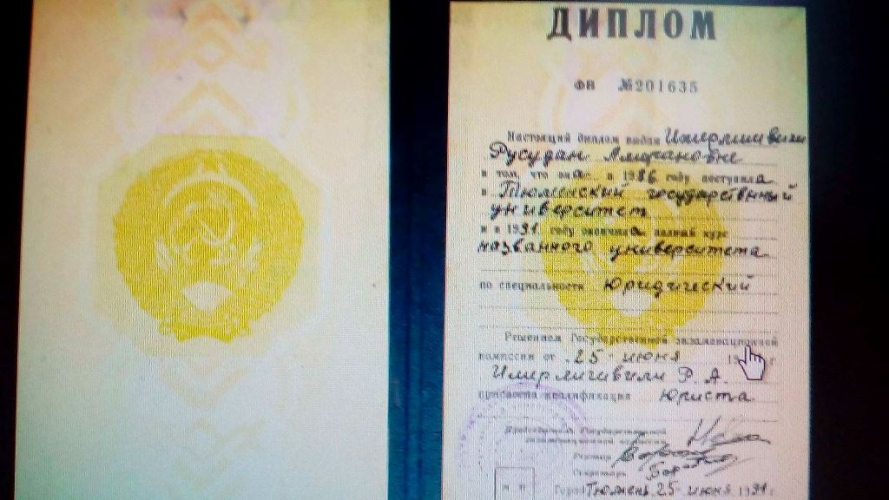 ДИПЛОМ
ФВ №201635
Настоящий диплом выдан Имерлишвили
Русудан Амирановне
в том, что она в 1986 году поступила
в Тюменский государственный
университет
и в 1991 году окончила полный курс
названного университета
по специальности Юридический
Решением Государственной экзаменационной
комиссии от 25 июня 19 г
Имерлишвили Р. А.
присвоена квалификация юриста
Председатель Государственной
экзаменационной комиссии
Ректор
Секретарь
Город Тюмень 25 июня 1991